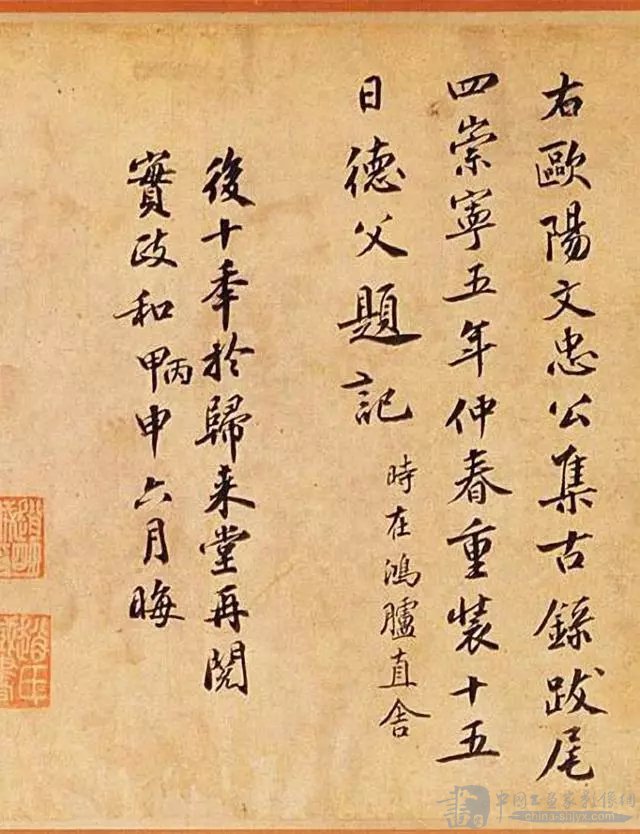 右歐陽文忠公集古錄跋尾
四崇寧五年仲春重裝十五
日德父題記 時在鴻臚直舍
後十年於歸来堂再閱
實政和甲丙申六月晦
中国书画家影像网
china-shjyx.com